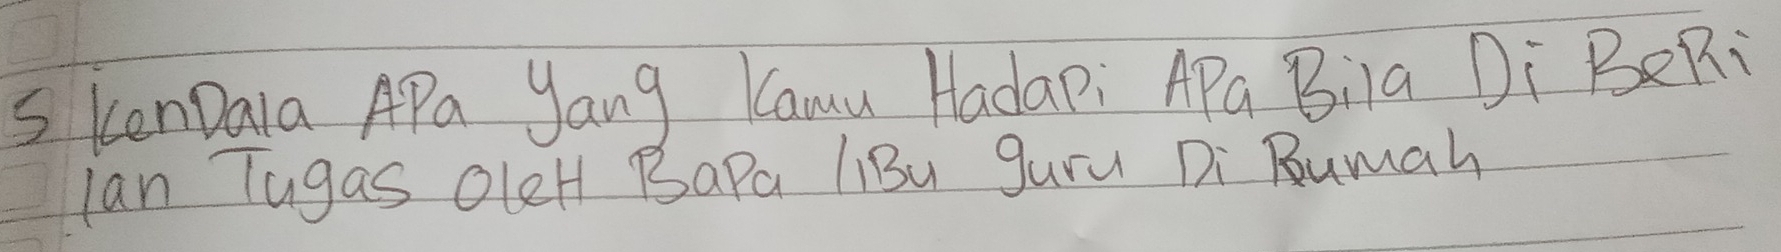 5 KenDala APa Yang Kamu HadaPi APa Bila Di BeRi
lan Tugas oleH BaPa /iBu guru Di Rumah